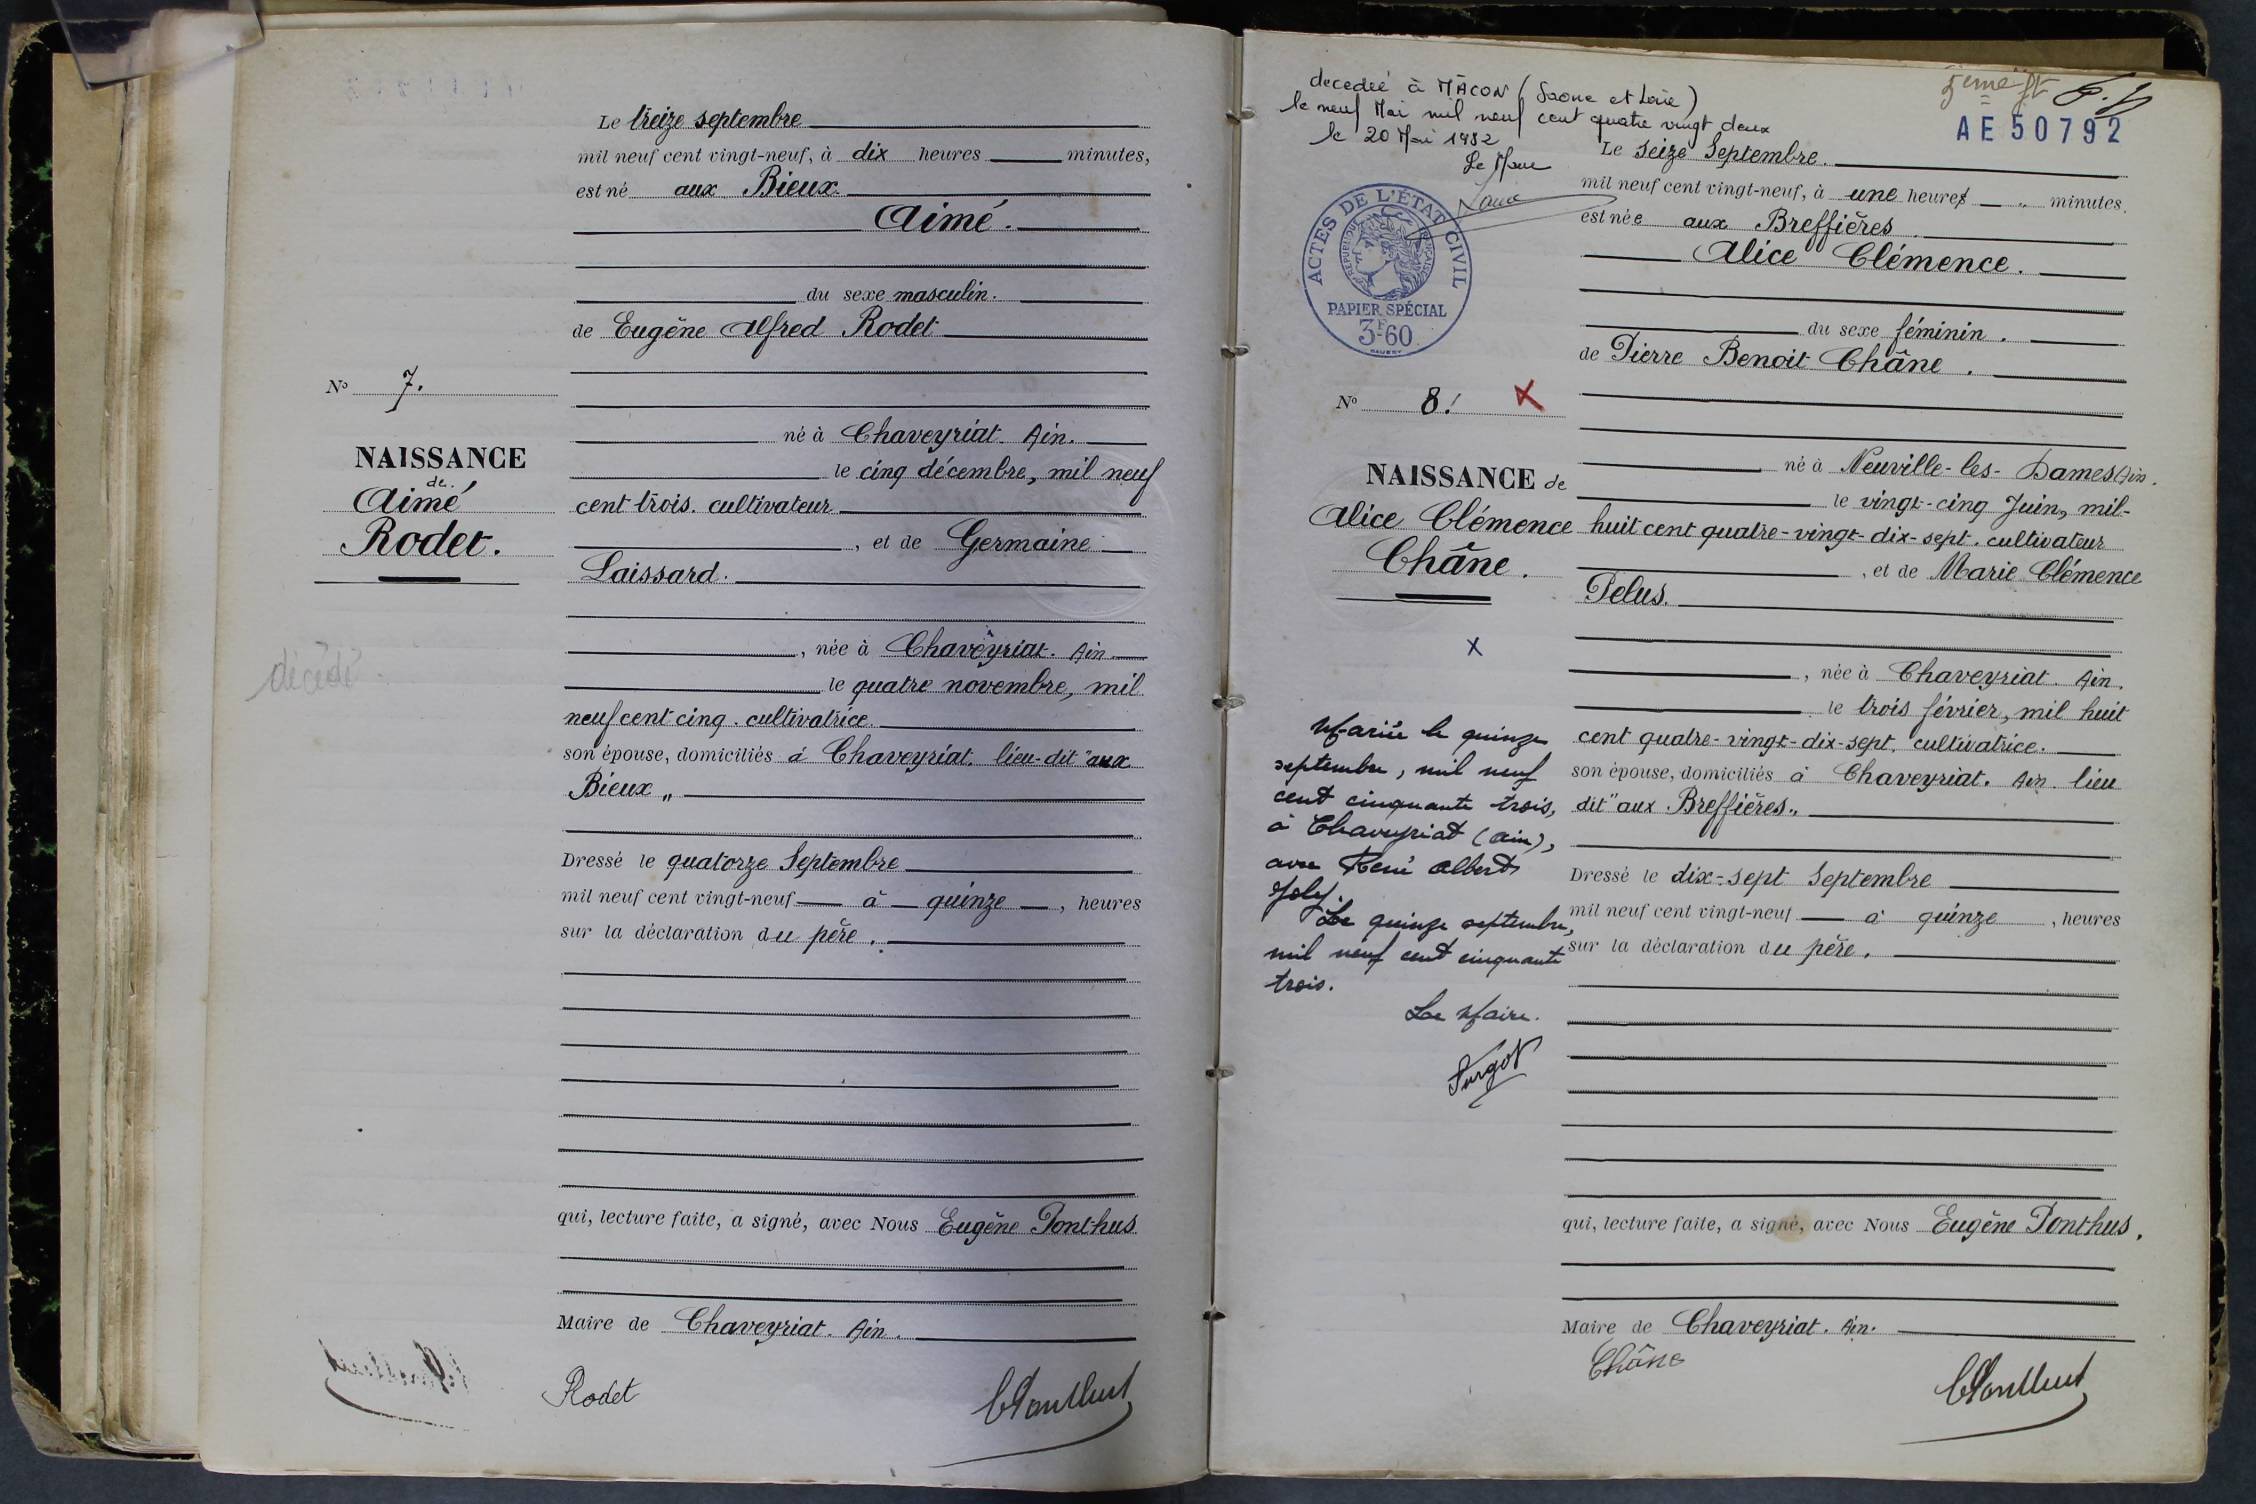 Le treize septembre
mil neuf cent vingt-neuf, à dix heures minutes,
est né aux Bieux.
Aimé.
du sexe masculin.
de Eugène Alfred Rodet
No 7.
NAISSANCE
de
Aimé
Rodet.
décédé.
né à Chaveyriat. Ain.
le cinq décembre, mil neuf
cent trois. cultivateur
, et de Germaine
Laissard.
, née à Chaveyriat. Ain
le quatre novembre, mil
neuf cent cinq. cultivatrice.
son épouse, domiciliés à Chaveyriat. lieu-dit "aux
Bieux„
Dressé le quatorze Septembre
mil neuf cent vingt-neuf à quinze, heures
sur la déclaration du père.
qui, lecture faite, a signé, avec Nous Eugène Ponthus
Maire de Chaveyriat. Ain.
Rodet
decedeé à MÂCON (Saone et Loire)
le neuf Mai mil neuf cent quatre vingt deux
le 20 Mai 1982
Le Maire
5eme ft
AE 50792
ACTES DE L'ÉTAT CIVIL
RÉPUBLIQUE FRANÇAISE
PAPIER SPÉCIAL
3F60
Le seize Septembre.
mil neuf cent vingt-neuf, à une heures „ minutes.
est née aux Breffières.
Alice Clémence.
du sexe féminin.
de Pierre Benoit Châne.
No 8.
NAISSANCE de
Alice Clémence
Châne.
x
Mariée le quinze
septembre, mil neuf
cent cinquante trois,
à Chaveyriat (ain),
avec René Albert
Joly.
Le quinze septembre,
mil neuf cent cinquante
trois.
Le Maire.
né à Neuville-les-Dames Ain.
le vingt-cinq Juin, mil-
huit cent quatre-vingt-dix-sept. cultivateur
, et de Marie Clémence
Pelus.
, née à Chaveyriat. Ain.
le trois février, mil huit
cent quatre-vingt-dix-sept. cultivatrice.
son épouse, domiciliés à Chaveyriat. Ain. lieu
dit "aux Breffières„
Dressé le dix-sept Septembre
mil neuf cent vingt-neuf à quinze, heures
sur la déclaration du père.
qui, lecture faite, a signé, avec Nous Eugène Ponthus.
Maire de Chaveyriat. Ain.
Châne